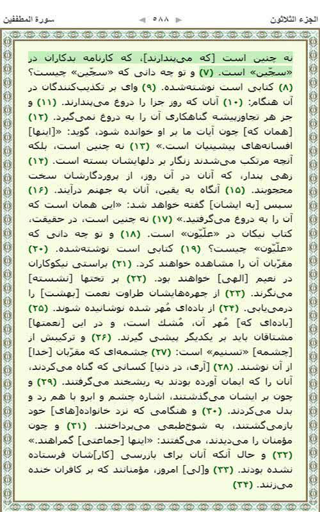 الجزء الثلاثون
٥٨٨
سورة المطففين
نه چنین است [که می‌پندارند]، که کارنامه بدکاران در
«سجّین» است. (٧) و تو چه دانی که «سجّین» چیست؟
(٨) کتابی است نوشته‌شده. (٩) وای بر تکذیب‌کنندگان در
آن هنگام: (١٠) آنان که روز جزا را دروغ می‌پندارند. (١١) و
جز هر تجاوزپیشه گناهکاری آن را به دروغ نمی‌گیرد. (١٢)
[همان که] چون آیات ما بر او خوانده شود، گوید: «[اینها]
افسانه‌های پیشینیان است.» (١٣) نه چنین است، بلکه
آنچه مرتکب می‌شدند زنگار بر دلهایشان بسته است. (١٤)
زهی پندار، که آنان در آن روز، از پروردگارشان سخت
محجوبند. (١٥) آنگاه به یقین، آنان به جهنم درآیند. (١٦)
سپس [به ایشان] گفته خواهد شد: «این همان است که
آن را به دروغ می‌گرفتید.» (١٧) نه چنین است، در حقیقت،
کتاب نیکان در «علّیّون» است. (١٨) و تو چه دانی که
«علّیّون» چیست؟ (١٩) کتابی است نوشته‌شده. (٢٠)
مقرّبان آن را مشاهده خواهند کرد. (٢١) براستی نیکوکاران
در نعیم [الهی] خواهند بود. (٢٢) بر تختها [نشسته]
می‌نگرند. (٢٣) از چهره‌هایشان طراوت نعمت [بهشت] را
درمی‌یابی. (٢٤) از باده‌ای مُهر شده نوشانیده شوند. (٢٥)
[باده‌ای که] مُهر آن، مُشک است، و در این [نعمتها]
مشتاقان باید بر یکدیگر پیشی گیرند. (٢٦) و ترکیبش از
[چشمه] «تسنیم» است: (٢٧) چشمه‌ای که مقرّبان [خدا]
از آن نوشند. (٢٨) [آری، در دنیا] کسانی که گناه می‌کردند،
آنان را که ایمان آورده بودند به ریشخند می‌گرفتند. (٢٩) و
چون بر ایشان می‌گذشتند، اشاره چشم و ابرو با هم رد و
بدل می‌کردند. (٣٠) و هنگامی که نزد خانواده[های] خود
بازمی‌گشتند، به شوخ‌طبعی می‌پرداختند. (٣١) و چون
مؤمنان را می‌دیدند، می‌گفتند: «اینها [جماعتی] گمراهند.»
(٣٢) و حال آنکه آنان برای بازرسی [کار]شان فرستاده
نشده بودند. (٣٣) و[لی] امروز، مؤمنانند که بر کافران خنده
می‌زنند. (٣٤)